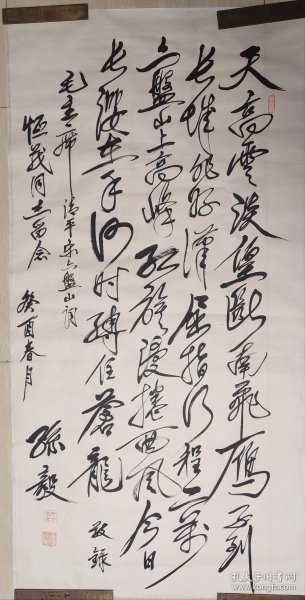 天高雲淡望斷南飛雁不到
长城非好漢屈指行程二萬
六盤山上高峰红旗漫捲西风今日
长缨在手何时缚住蒼龍 敬錄
毛主席清平乐六盘山词
恒義同志留念 癸酉春月
孫毅
孔夫子旧书网